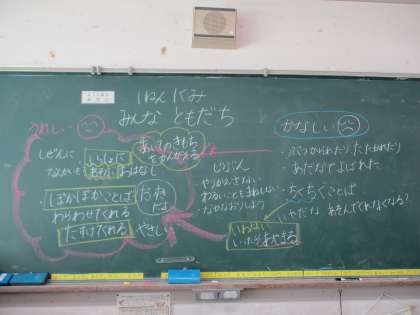 1ねん1くみ
みんな ともだち
うれしい
しぜんに
いっしょに
なかまを
あそび
おはなし
・ぽかぽかことば
わらわせてくれる
たすけてくれる
やさしい
だね
だよ
あいてのきもち
をかんがえる
じぶん
・やりかえさない
わるいことをまねしない
・なかなおりしよう
いわない
いったらあやまる
かなしい
・ぶつかられたり たたかれたり
・あだなでよばれた
・ちくちくことば
いやだな あそんでくれなくなる?